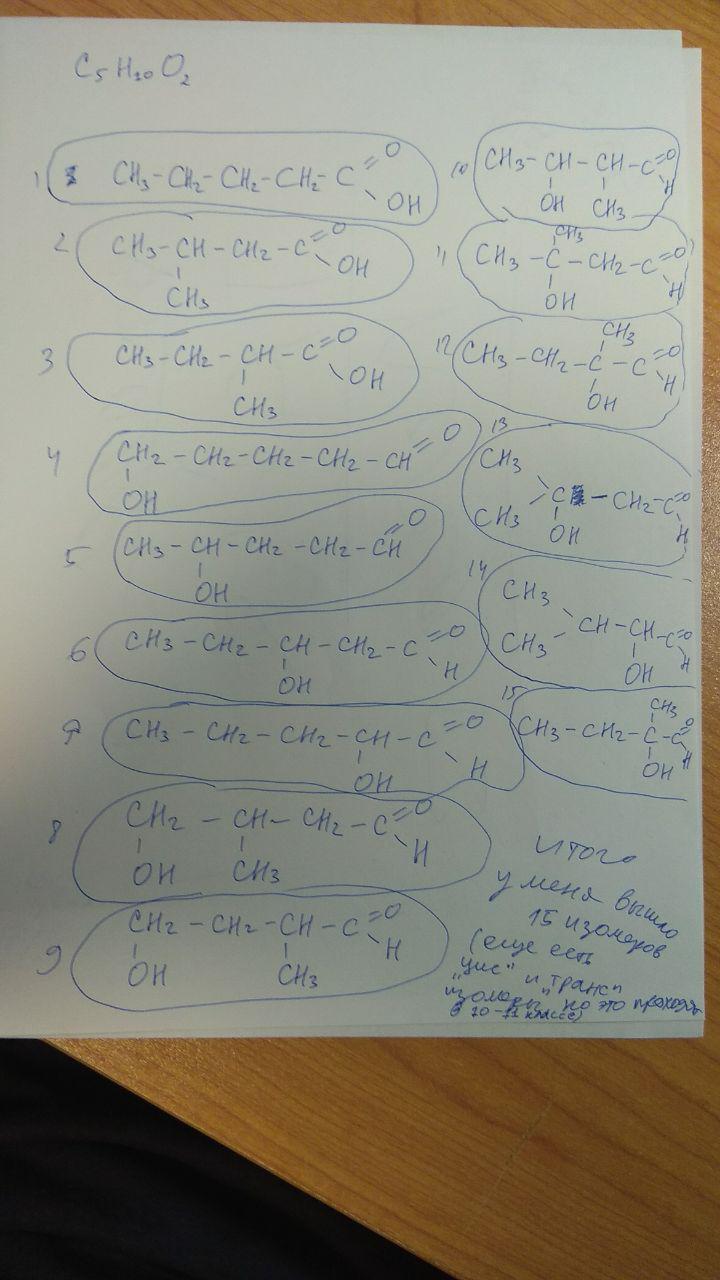 C5H10O2
1 CH3-CH2-CH2-CH2-C=O
OH
2 CH3-CH-CH2-C=O
OH
CH3
3 CH3-CH2-CH-C=O
OH
CH3
4 CH2-CH2-CH2-CH2-CH=O
OH
5 CH3-CH-CH2-CH2-CH=O
OH
6 CH3-CH2-CH-CH2-C=O
H
OH
7 CH3-CH2-CH2-CH-C=O
H
OH
8 CH2-CH-CH2-C=O
H
OH CH3
9 CH2-CH2-CH-C=O
H
OH CH3
10 CH3-CH-CH-C=O
H
OH CH3
11 CH3
CH3-C-CH2-C=O
H
OH
12 CH3
CH3-CH2-C-C=O
H
OH
13
CH3
C-CH2-C=O
CH3
OH H
14
CH3
CH-CH-C=O
CH3
OH H
15
CH3
CH3-CH2-C-C=O
H
OH
Итого
у меня вышло
15 изомеров
(еще есть
"цис" и "транс"
изомеры, но это проходят
в 10-11 классе)